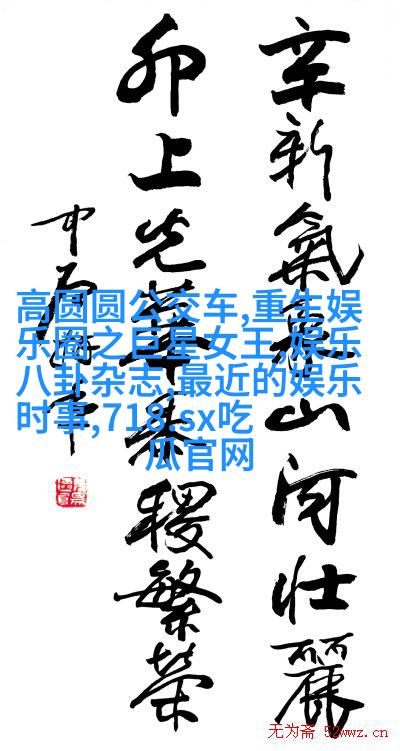 辛新氣象山河壮麗
卯上光華黍稷繁榮
中石
高圆圆公交车,重生娱
乐圈之巨星女王,娱乐
八卦杂志,最近的娱乐
时事,718.sx吃
瓜官网
无为斋 52wwz.cn